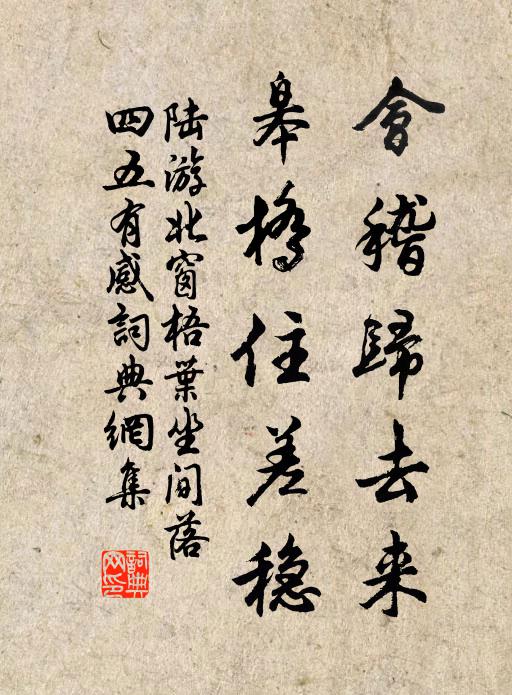 會稽歸去来
皋橋住差稳
陆游北窗梧葉坐间落
四五有感詞典網集
詞典
网印